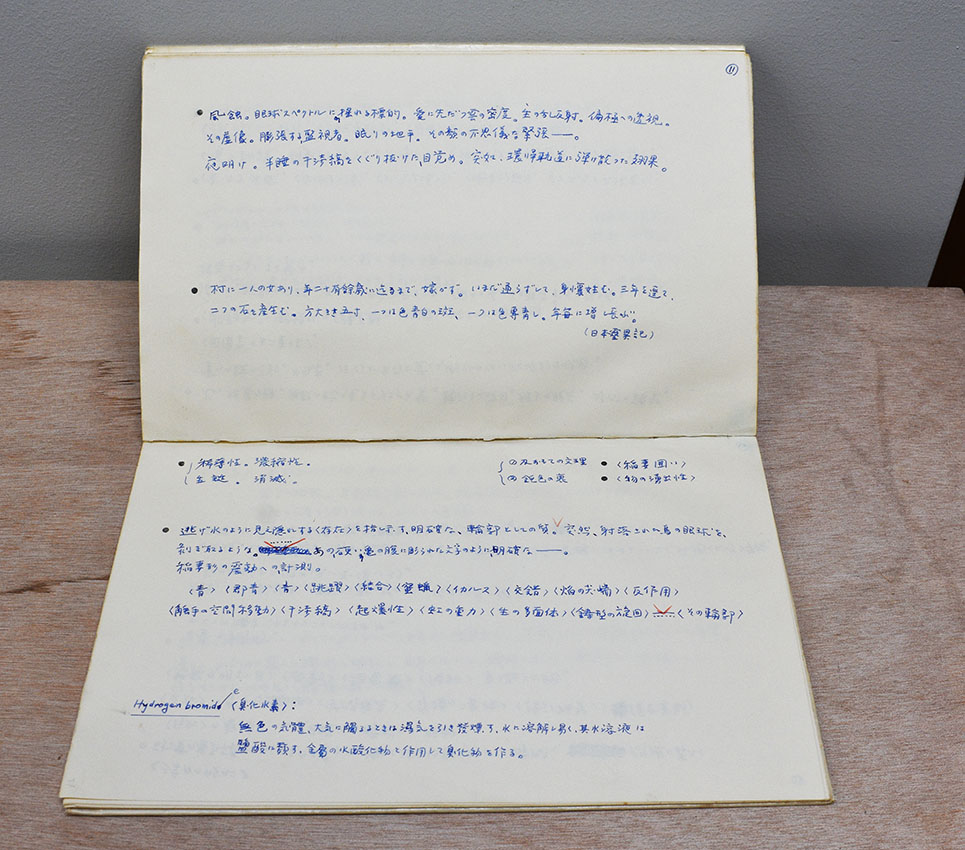 ⑪
● 風蝕。眼球スペクトルに揺れる標的。愛に先だつ雲の密度。全の乱反射。偏極への透視。
その星優。膨張する監視者。眠りの地平。その類の不思儀な緊張——。
夜明け。半睡の干渉縞をくぐり抜けた目覚め。突如、環状軌道に弾け散った効果。
● 村に一人の女あり、年二十有餘歳に迄るまで、嫁がず。いまだ通らずして、身懐妊む。三年を逕て、
二つの石を産生む。方大きさ五寸、一つは色青白の斑、一つは色專青し。年毎に増し長ぶ。
(日本霊異記)
● 稲導性。濃縮性。
生 。消滅。
(1) としての交理 ● 〈稲妻囲い〉
(2) 鉛色の裏 ● 〈物の湧出性〉
● 逃げ水のように見え隠れする〈存在〉を指し示す、明確な、輪郭としての質。突然、射落された鳥の眼球を、
剥ぎ取るような、あの硬い、亀の腹に彫られた文字のように明確な——。
稲妻形の震動への計測。
〈青〉〈群青〉〈青〉〈跳躍〉〈結合〉〈蜜蠟〉〈イカルス〉〈交錯〉〈焔の犬蠟〉〈反作用〉
〈触手の空間移動〉〈干渉縞〉〈起爆性〉〈虹の重力〉〈生の多面体〉〈鋳型の旋回〉〈その輪郭〉
Hydrogen bromide 〈臭化水素〉:
無色の気體、大気に觸るときは濕気を引き發煙す、水に溶解し易く、其水溶液は
鹽酸に類す、金属の水酸化物と作用して臭化物を作る。